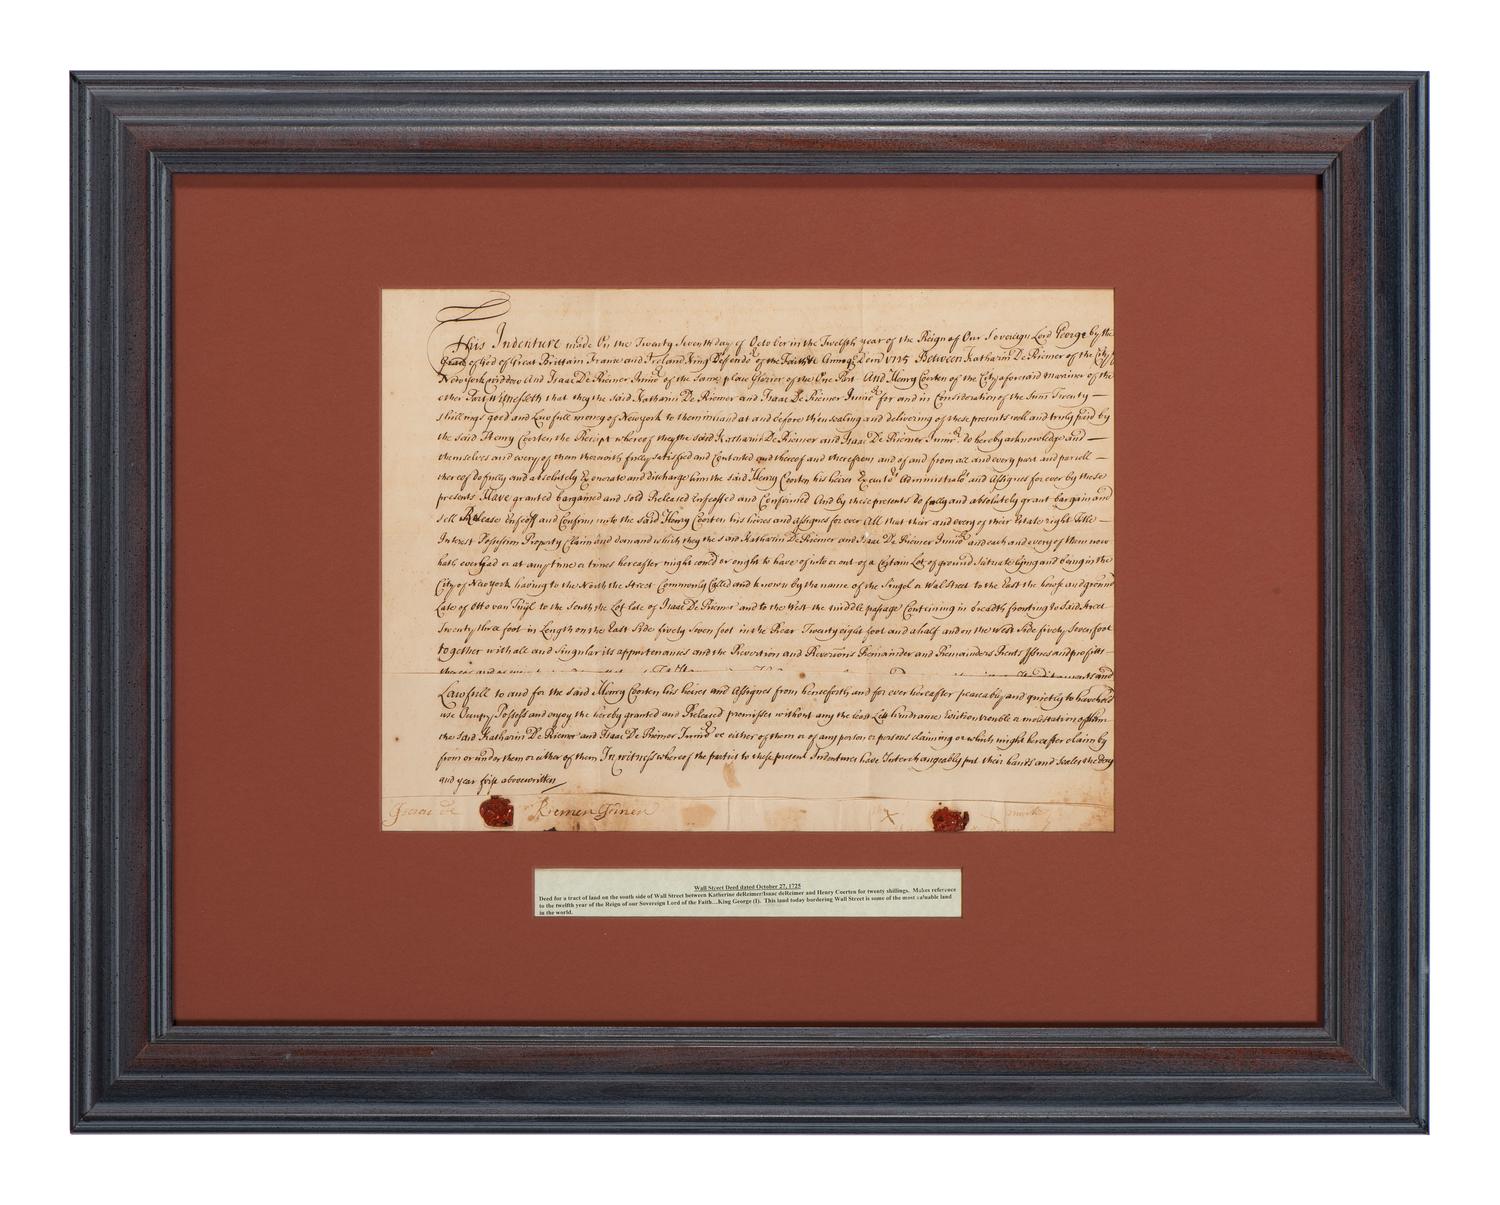 This Indenture made On the Twenty Seventh day of October in the Twelfth year of the Reign of Our Sovereign Lord George by the
Grace of God of Great Brittain France and Ireland King Defendr of the Faith &c Annoq Dom 1725 Between Katharin De Riemer of the City of
New York widdow And Isaac De Riemer Junior of the Same place Glazier of the One Part And Henry Coerten of the City aforesaid Mariner of the
other Part Witnesseth that they the said Katharin De Riemer and Isaac De Riemer Junior for and in Consideration of the Sum Twenty —
shillings good and Lawfull money of New york to them in hand at and before the sealing and delivering of these presents well and truly paid by
the said Henry Coerten the Receipt whereof they the said Katharin De Riemer and Isaac De Riemer Junior do hereby acknowledge and —
themselves and every of them therewith fully satisfied and Contented and thereof and therefrom and of and from all and every part and parcell —
thereof do fully and absolutely Exonerate and discharge him the said Henry Coerten his heires Executrs Administratrs and Assignes for ever by these
presents Have granted bargained and sold Released Enfeoffed and Confirmed And by these presents do fully and absolutely grant bargain and
sell Release Enfeoff and Confirm unto the said Henry Coerten his heires and assignes for ever All that their and every of their Estate right Title —
Interest Possession Property Claim and demand which they the said Katharin De Riemer and Isaac De Riemer Junior and each and every of them now
hath ever had or at any time or times hereafter might could or ought to have of into or out of a Certain Lot of ground Scituate lying and being in the
City of New York having to the North the Street Commonly Called and known by the name of the Singel or Wal Street to the East the house and ground
Late of Otto van Tuijl to the South the Lot late of Isaac De Riemer and to the West the middle passage Containing in breadth fronting to said street
Twenty three foot in Length on the East Side fivety Seven foot in the Rear Twenty eight foot and a half and on the West Side fivety Seven foot
together with all and singular its appurtenances and the Revertion and Revertions Remainder and Remainders Rents Issues and profitts —
Lawfull to and for the said Henry Coerten his heires and Assignes from henceforth and for ever hereafter peaceably and quietly to have hold
use Occupy Possess and enjoy the hereby granted and Released premisses without any the least Lett hindrance Eviction trouble or molestation of them
the said Katharin De Riemer and Isaac De Riemer Junior or either of them or of any person or persons claiming or which might hereafter claim by
from or under them or either of them In witness whereof the parties to these present Indentures have Interchangeably put their hands and Seales the day
and year first above written
Isaac de Riemer Joiner X mark
Wall Street Deed dated October 27, 1725
Deed for a tract of land on the south side of Wall Street between Katherine deReimer/Isaac deReimer and Henry Coerten for twenty shillings. Makes reference
to the twelfth year of the Reign of our Sovereign Lord of the Faith...King George (I). This land today bordering Wall Street is some of the most valuable land
in the world.